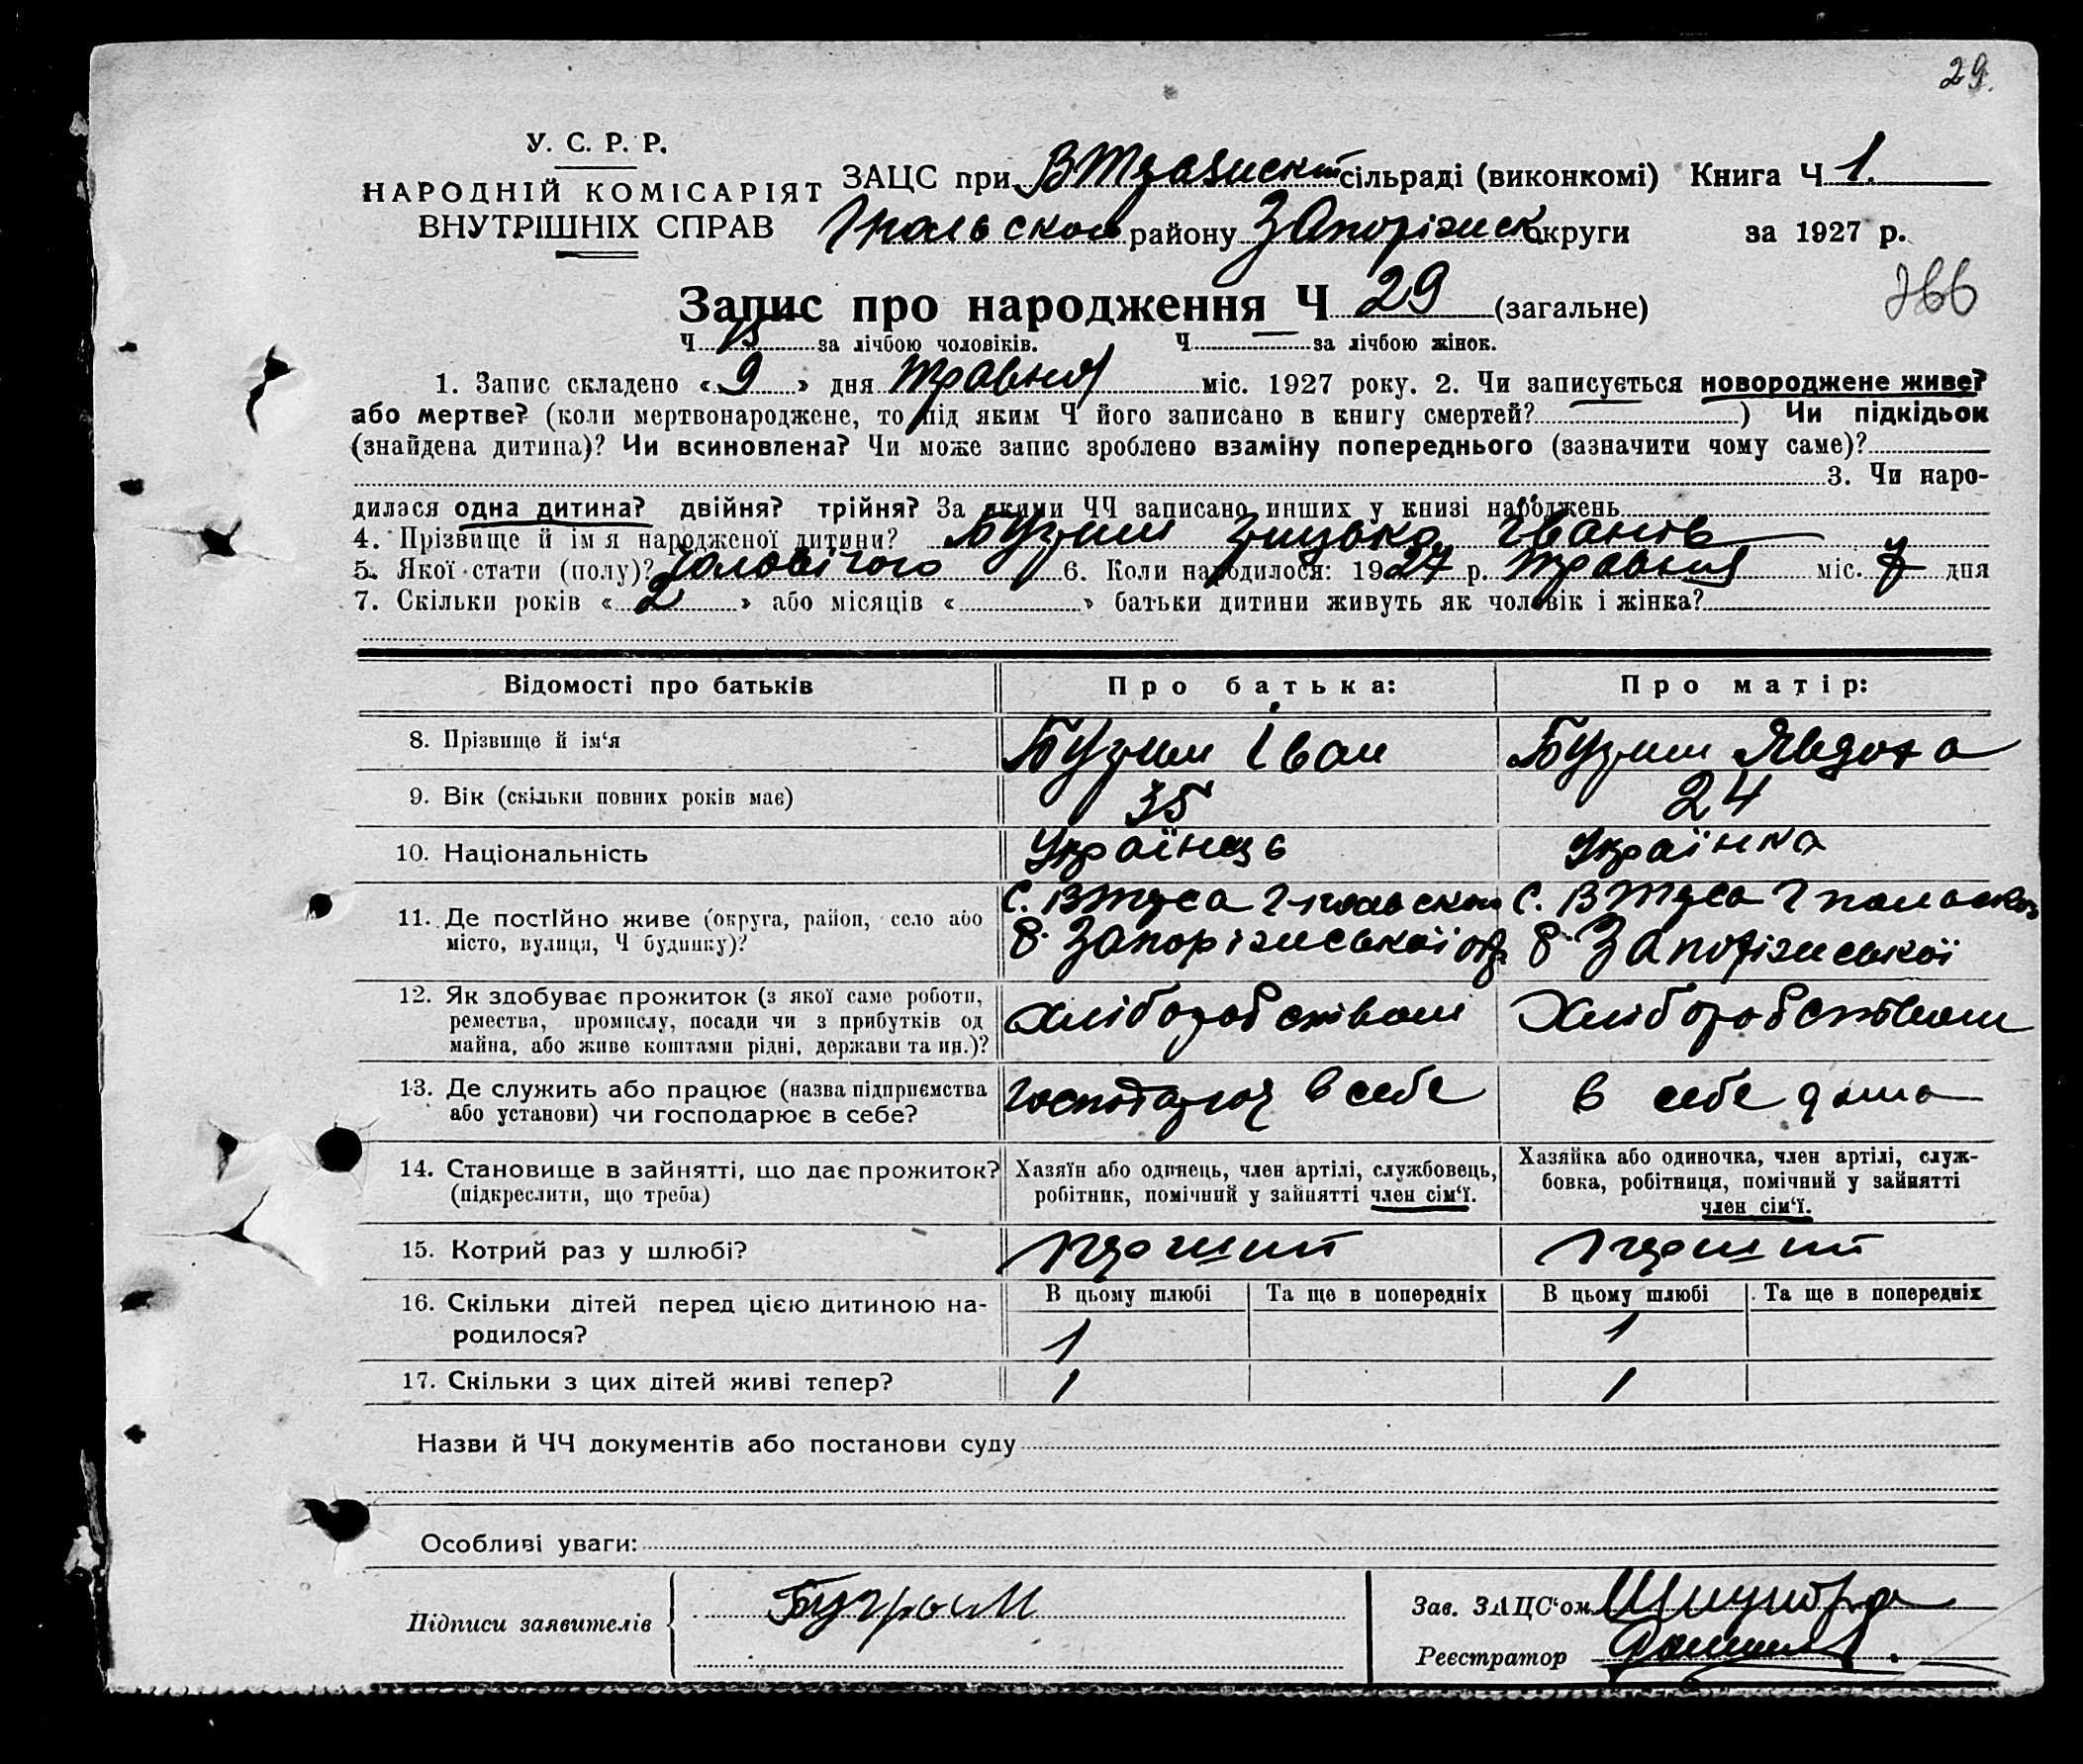 29.
У. С. Р. Р.
НАРОДНІЙ КОМІСАРІЯТ
ВНУТРІШНІХ СПРАВ
ЗАЦС при сільраді (виконкомі) Книга Ч 1.
району Запоріжськ округи за 1927 р.
Запис про народження Ч 29 (загальне)
366
Ч 15 за лічбою чоловіків. Ч — за лічбою жінок.
1. Запис складено «9» дня травня міс. 1927 року. 2. Чи записується новороджене живе?
або мертве? (коли мертвонароджене, то під яким Ч його записано в книгу смертей? ) Чи підкідьок
(знайдена дитина)? Чи всиновлена? Чи може запис зроблено взаміну попереднього (зазначити чому саме)?
3. Чи наро-
дилася одна дитина? двійня? трійня? За якими ЧЧ записано инших у книзі народжень
4. Прізвище й імя народженої дитини?
5. Якої стати (полу)? чоловічого 6. Коли народилося: 1927 р. травня міс. 7 дня
7. Скільки років «2» або місяців « » батьки дитини живуть як чоловік і жінка?
Відомості про батьків Про батька: Про матір:
8. Прізвище й ім‘я Іван Явдоха
9. Вік (скільки повних років має) 35 24
10. Національність Українець Українка
11. Де постійно живе (округа, район, село або
місто, вулиця, Ч будинку)?
с. ВТокса
Запоріжської окр. Запоріжської
12. Як здобуває прожиток (з якої саме роботи,
ремества, промислу, посади чи з прибутків од
майна, або живе коштами рідні, держави та ин.)?
Хліборобством Хліборобством
13. Де служить або працює (назва підприємства
або установи) чи господарює в себе?
в себе в себе дома
14. Становище в зайнятті, що дає прожиток?
(підкреслити, що треба)
Хазяїн або одинець, член артілі, службовець,
робітник, помічний у зайнятті член сім‘ї.
Хазяйка або одиночка, член артілі, служ-
бовка, робітниця, помічний у зайнятті
член сім‘ї.
15. Котрий раз у шлюбі? перший перший
16. Скільки дітей перед цією дитиною на-
родилося?
В цьому шлюбі Та ще в попередніх В цьому шлюбі Та ще в попередніх
1 1
17. Скільки з цих дітей живі тепер? 1 1
Назви й ЧЧ документів або постанови суду
Особливі уваги:
Підписи заявителів
Зав. ЗАЦС‘ом
Реєстратор